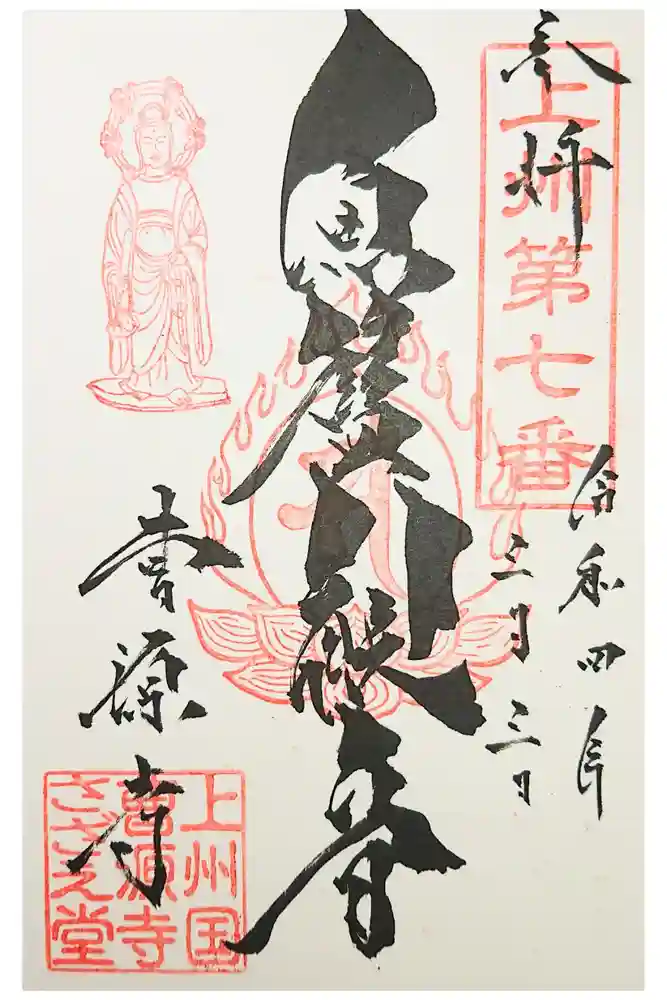 奉拝
上州第七番
令和四年
三月三日
魚籃観音
曹源寺
上州国
曹源寺
さざえ堂